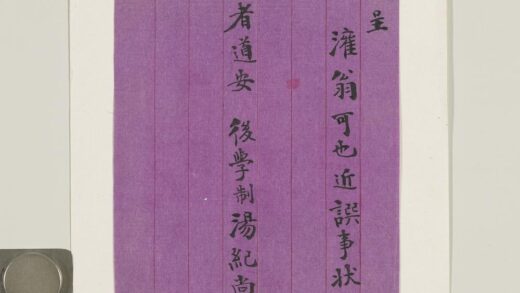 呈
濰翁可也近譔事狀
者道安　後學制湯紀尚